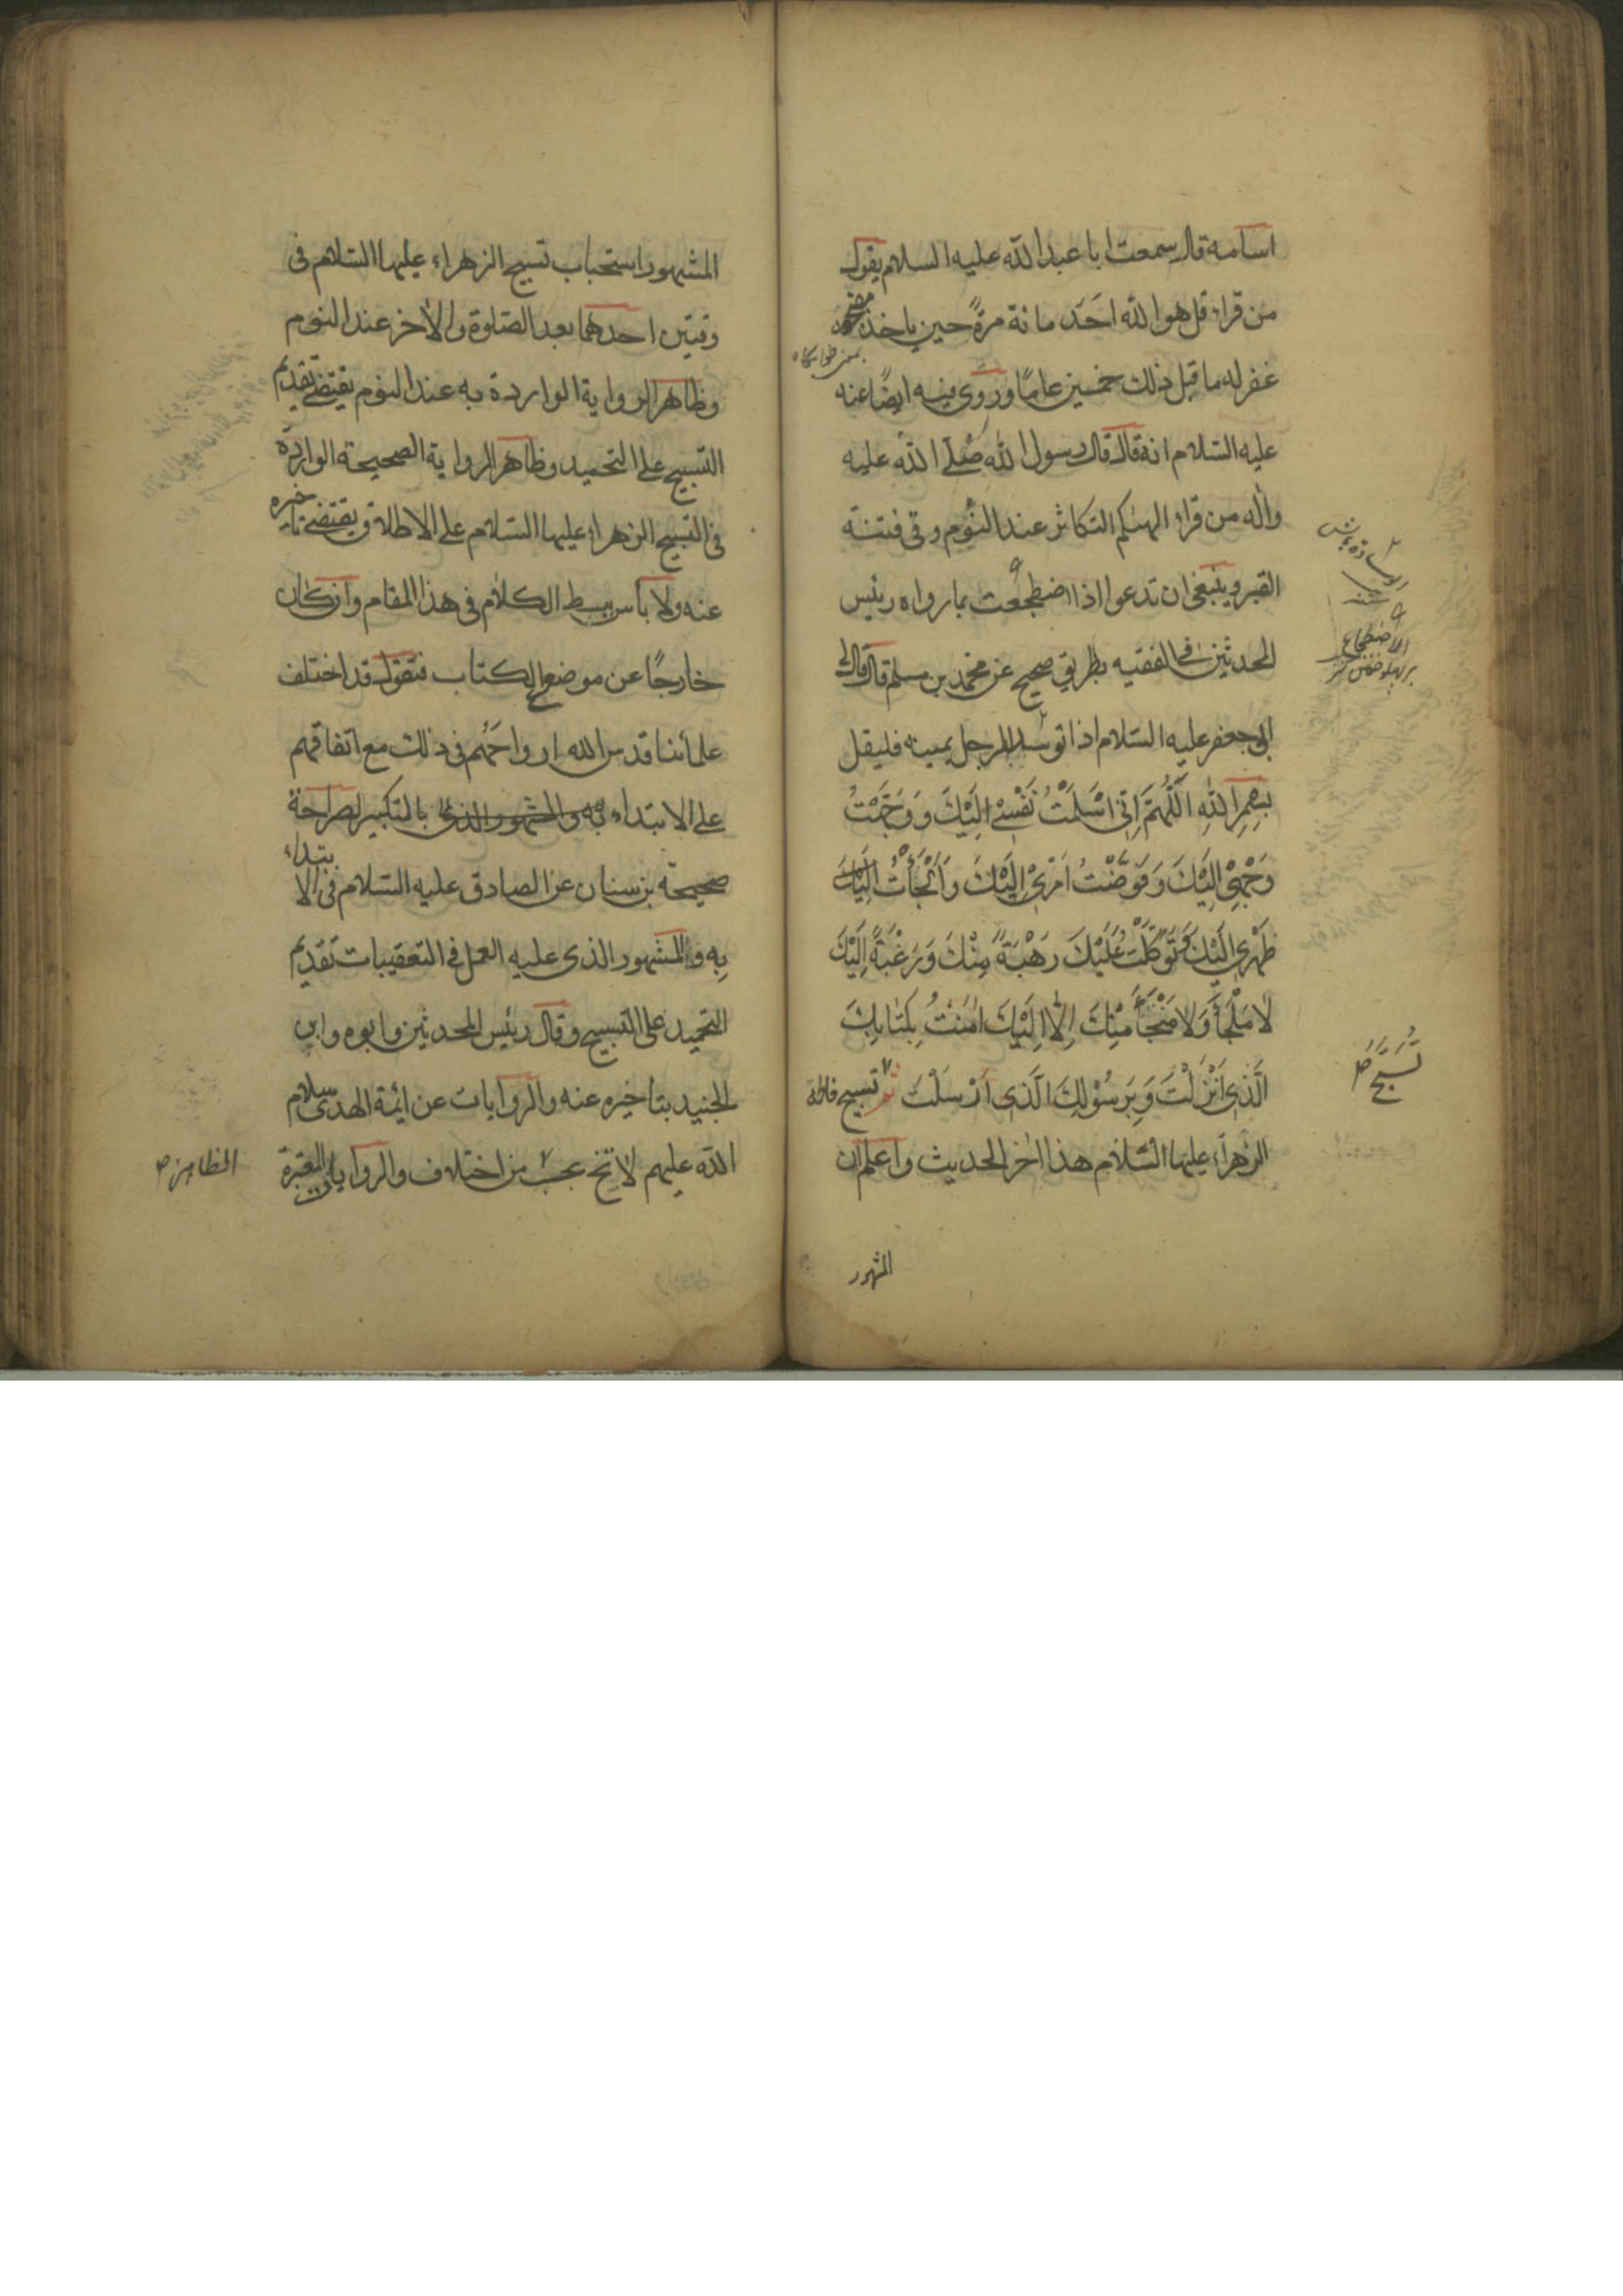 اسامه قال سمعت ابا عبد الله عليه السلام يقول
من قراء قل هو الله اَحَد مائة مرةً حين ياخذ مضجعه
بمعنی خوابگاه
غفر له ما قبل ذلك خمسين عامًا وروى فيه ايضًا عنه
عليه السّلام انه قال قال رسول الله صلّى الله عليه
واٰله من قراء الهٰيكم التكاثر عند النّوم وقى فتنة
القبر وينبغى ان تدعوا اذا اضطجعت بما رواه رئيس
المحدثين فى الفقيه بطريق صحيح عن محمّد بن مسلم قال قال لى
ابى جعفر عليه السّلام اذا توسّد الرجل يمينه فليقل
بِسْمِ اللهِ اَللّٰهُمَّ اِنّى اَسْلَمْتُ نَفْسِىْ اِلَيْكَ وَوَجَّهْتُ
وَجْهِىْ اِلَيْكَ وَفَوَّضْتُ اَمْرِىْ اِلَيْكَ وَاَلْجَأْتُ اِلَيْكَ
ظَهْرِى اِلَيْكَ وَتَوَكَّلْتُ عَلَيْكَ رَهْبَةً مِنْكَ وَرَغْبَةً اِلَيْكَ
لاٰ مَلْجَأَ وَلاٰ مَنْجَأَ مِنْكَ اِلّاٰ اِلَيْكَ اٰمَنْتُ بِكِتٰابِكَ
الَّذِى اَنْزَلْتَ وَبِرَسُوْلِكَ الَّذِى اَرْسَلْتَ ثم تسبيح فاطمة
الزهراء عليها السّلام هذا اٰخر الحديث واعلم ان
الاضطجاع
تُسَبِّحُ ص
المشهور
المشهور استحباب تسبيح الزهراء عليها السّلام فى
وقتين احدهما بعد الصّلوة والاٰخر عند النوم
وظاهر الرواية الواردة به عند النوم يقتضى تقديم
التسبيح على التحميد وظاهر الرواية الصحيحة الواردة
فى التسبيح الزهراء عليها السّلام على الاطلاق يقتضى تاخيره
عنه ولا بأس ببسط الكلام فى هذا المقام وان كان
خارجًا عن موضع الكتاب فنقول قد اختلف
علمائنا قدس الله ارواحَهُم فى ذلك مع اتفاقهم
على الابتداء به والمشهور الذى بالتكبير لصراحة
صحيحة بن سنان عن الصادق عليه السّلام فى الابتداء
بِه والمشهور الذى عليه العمل فى التعقيبات تقديم
التحميد على التسبيح وقال رئيس المحدثين وابوه وابن
الجنيد بتاخيره عنه والروايات عن ائمة الهدى سلام
الله عليهم لا تخ بحسب من اختلاف والروايات المعتبرة
الظاهر ص